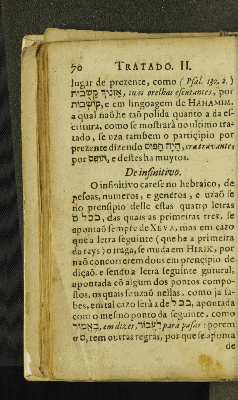 70 TRATADO. II.
lugar de prezente, como ( Psal. 130. 2. )
אזניך קשבות, tuas orelhas escutantes, por
קושבות, e em lingoagem de HAHAMIM.
a qual naõ he taõ polida quanto a da es-
critura, como se mostrará no ultimo tra-
tado, se uza tambem o partiçipio por
prezente dizendo היה תפוש, era travante,
por תופש, e destes ha muytos.
De infinitivo.
O infinitivo carese no hebraico, de
pesoas, numeros, e generos, e uzaõ se
no prensipio delle estas quatro letras
בכלם, das quais as primeiras tres, se
apontaõ sempre de XEVA, mas em cazo
que a letra seguinte ( que he a primeira
da rays ) o traga, se muda em HIRIK, por
naõ concorrerem dous em prençipio de
diçaõ, e sendo a letra seguinte gutural,
apontada cõ algum dos pontos compo-
stos, os quais se uzaõ nellas, como ja sa-
bes, em tal cazo será a de בכל, apontada
com o mesmo ponto da seguinte, como
באמור, em dizer, לעבור para pasar: porem
o מ, tem outras regras, por que se aponta
de